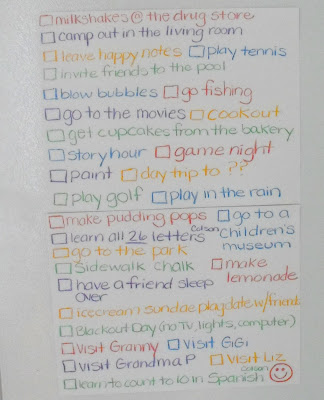 milkshakes @ the drug store
camp out in the living room
leave happy notes play tennis
invite friends to the pool
blow bubbles go fishing
go to the movies cookout
get cupcakes from the bakery
story hour game night
paint day trip to ??
play golf play in the rain
make pudding pops go to a children's museum
learn all 26 letters Colson
go to the park
Sidewalk chalk make lemonade
have a friend sleep over
icecream sundae playdate w/friend
Blackout Day (no TV, lights, computer)
Visit Granny Visit GiGi
Visit Grandma P Visit Liz
learn to count to 10 in Spanish Colson